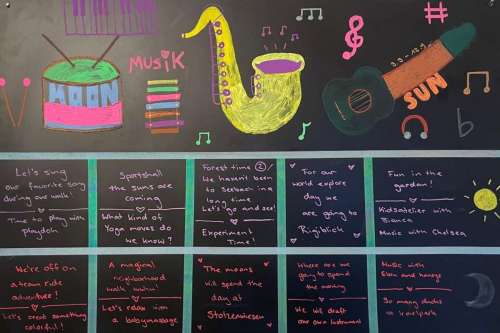 MUSiK
MOON
3.3 - 13.9
SUN
Let's sing
our favorite song
during our walk!
Time to play with
playdoh
Sportshall
the suns are
coming
What kind of
Yoga moves do
we know?
Forest time
We haven't been
to Seebach in a
long time
Let's go and see!
Experiment
Time!
For our
world explore
day we
are going to
Rigiblick
Fun in the
garden!
Kidsatelier with
Bianca
Music with Chelsea
We're off on
a team ride
adventure!
Let's create something
colorful!
A magical
neighborhood
walk
Let's relax with
a babymassage
The moons
will spend the
day at
Stolzewiesen
Where are we
going to spend
the morning
We will craft
our own instrument
Music with
and
So many ducks
at Irchelpark